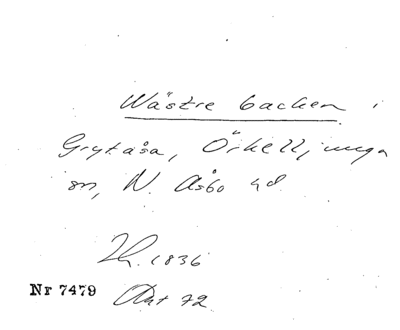 Wästre backen i
Grytåsa, Örkelljunga
sn, N. Åsbo hd
Lh. 1836
Nr 7479 Akt 72